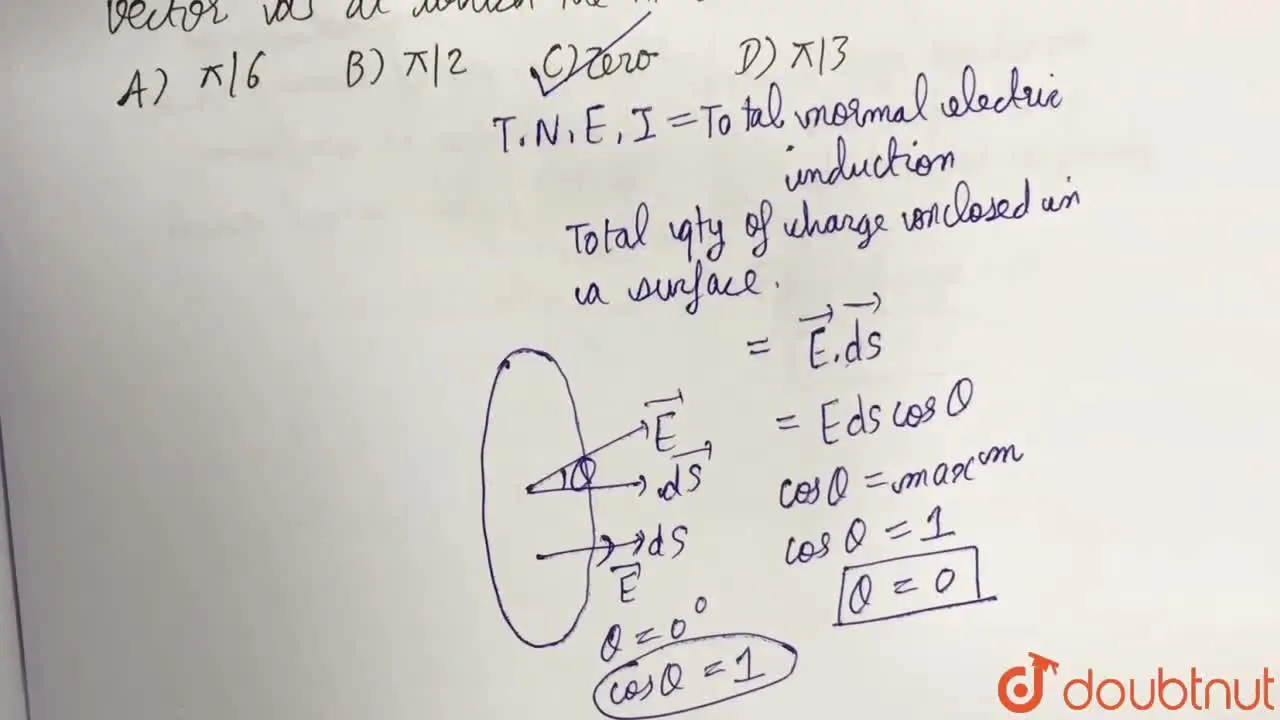 vector vds at which the
A) π/6 B) π/2 C) Zero D) π/3
T.N.E.I = Total normal electric
induction
Total qty of charge enclosed in
a surface.
= E⃗.ds⃗
= E ds cos θ
E⃗
θ
ds⃗
cos θ = max^m
ds
cos θ = 1
E⃗
θ = 0
θ = 0°
cos θ = 1
doubtnut